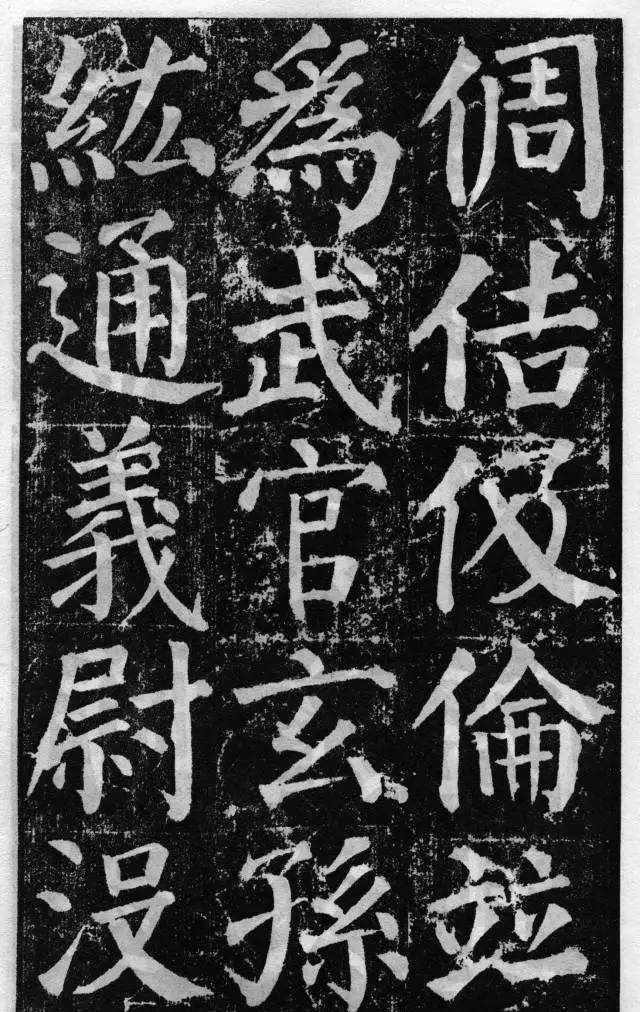 倜佶伋倫並
為武官玄孫
紘通義尉没